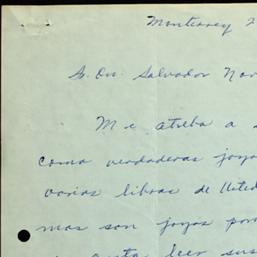 Monterrey 2
S. Dn. Salvador Nov
Me atreba a
como verdaderas joyas
varios libros de Usted
mas son joyas por
gusta leer sus